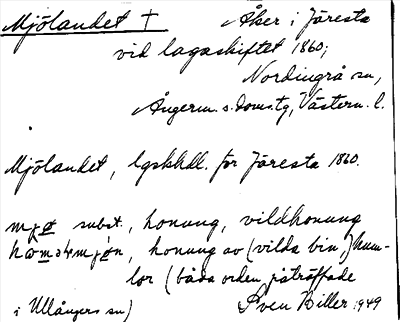 Mjölandet † Åker i Järesta
vid lagaskiftet 1860;
Nordingrå sn,
Ångerm. s. doms.tg, Västern. l.
Mjölandet, lgskhdl. för Järesta 1860.
mjø subst., honung, vildhonung
honung av (vilda bin) hum-
lor (båda orden påträffade
i Ullångers sn) Sven Hiller 1949